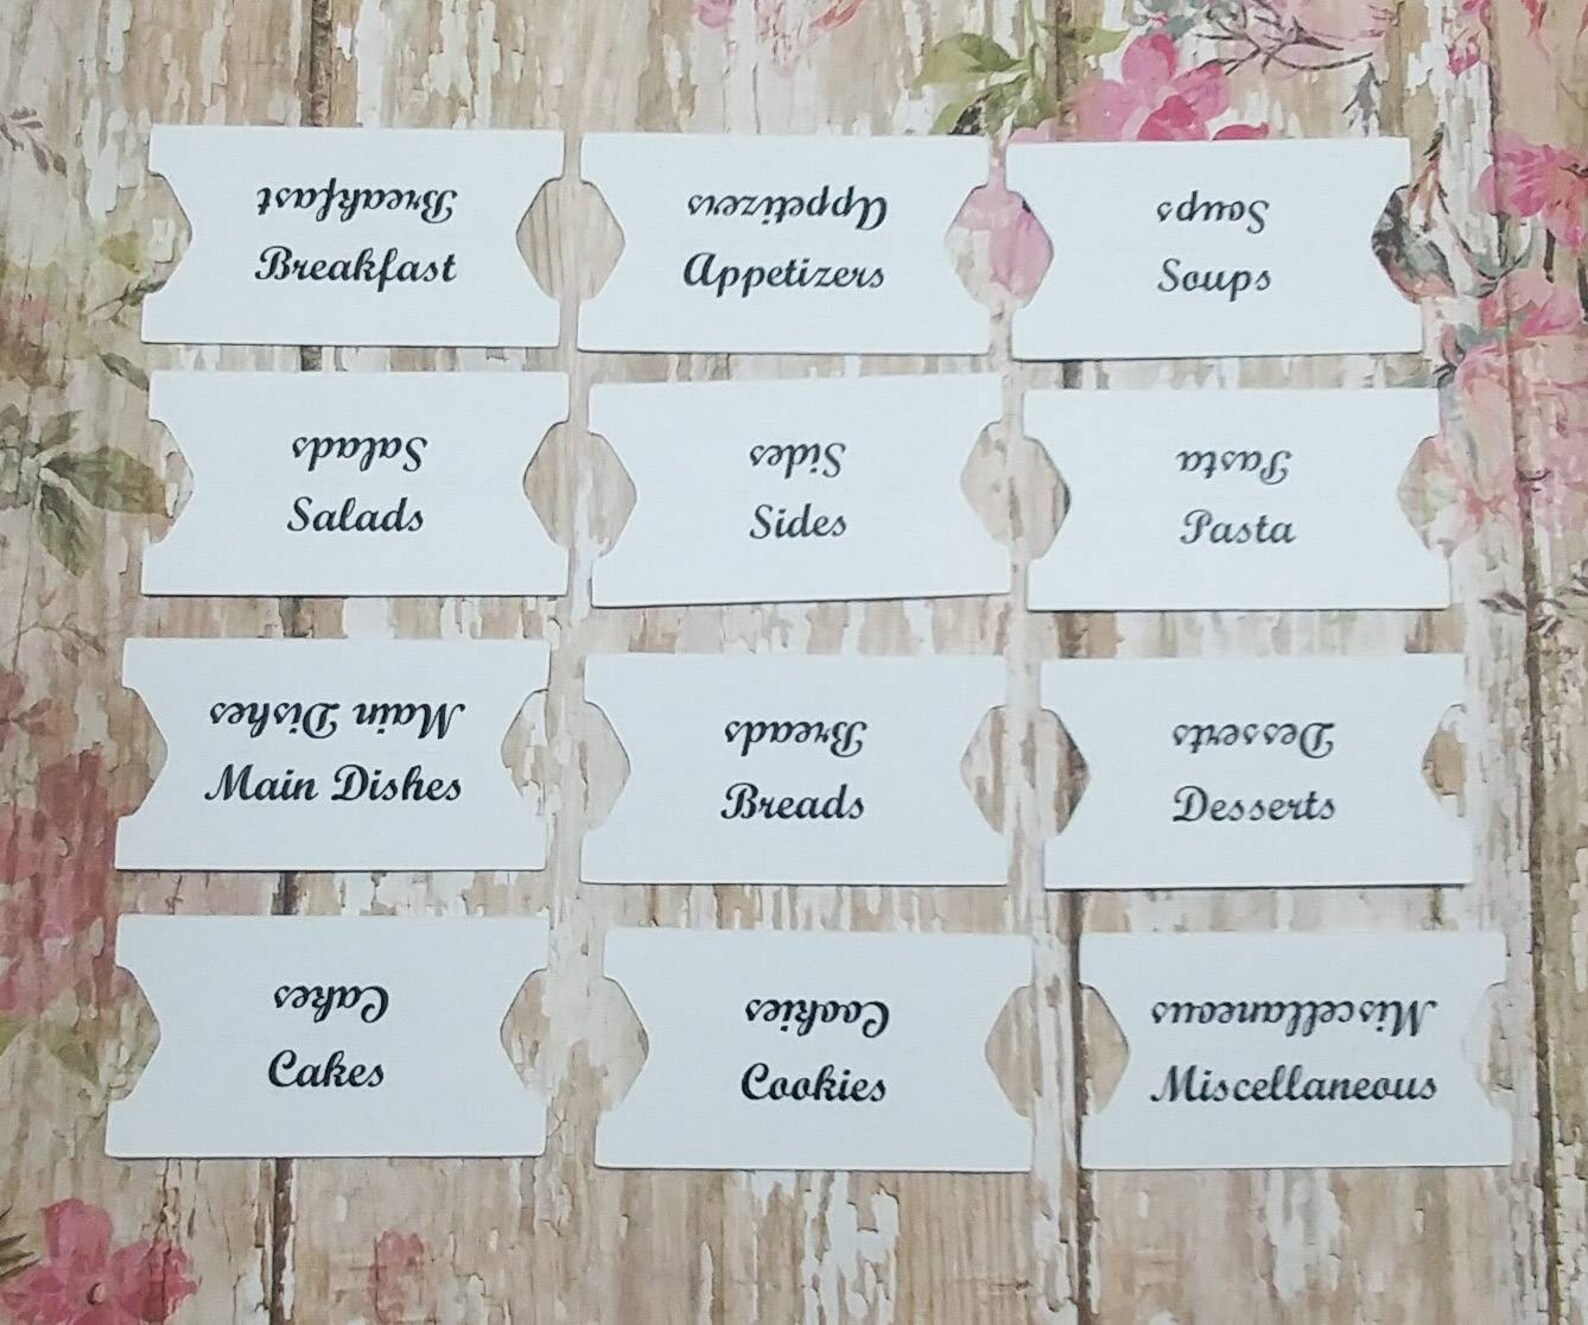 Breakfast
Breakfast
Appetizers
Appetizers
Soups
Soups
Salads
Salads
Sides
Sides
Pasta
Pasta
Main Dishes
Main Dishes
Breads
Breads
Desserts
Desserts
Cakes
Cakes
Cookies
Cookies
Miscellaneous
Miscellaneous